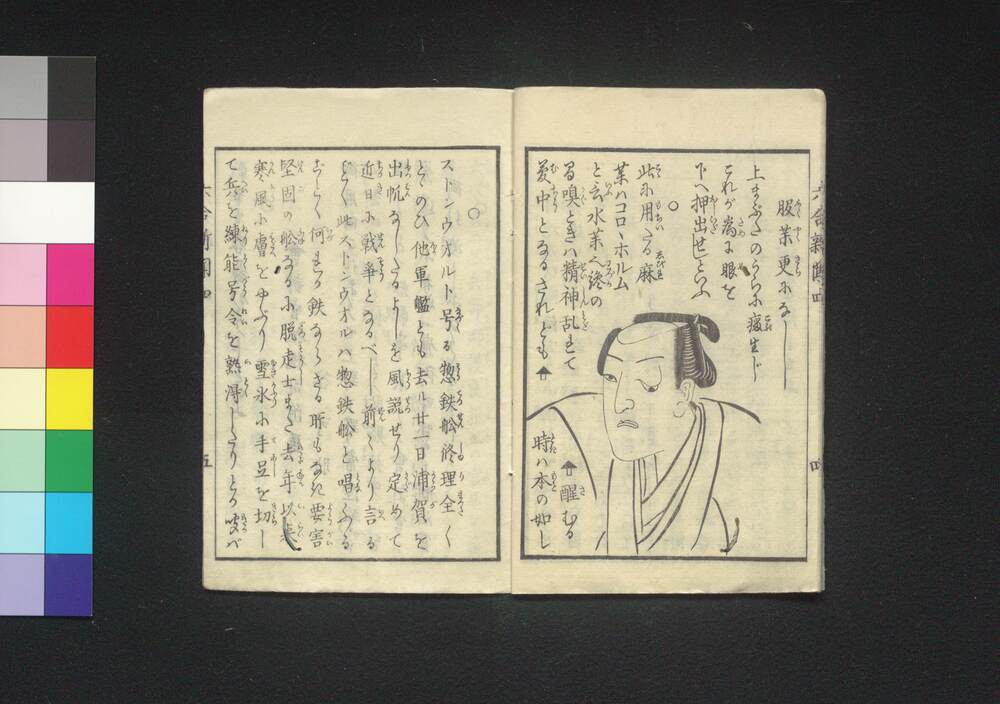 服薬更になし
上まぶたのうらに瘡生じ
これが為に眼を
下へ押出せといふ
〇
此に用たる麻
薬ハコロヽホルム
と云水薬
る嗅ときハ精神乱れて
夢中となるされども
醒むる
時ハ本の如し
六合新聞四
〇
ストンウオルト号る惣鉄舩修理全く
とゝのひ他軍艦とも去ル廿一日浦賀を
出帆なしたるよしを風説せり定めて
近日に戦争となるべし前々より言る
ごとく此ストンウオルハ惣鉄舩と唱ふる
ごとく何れも鉄ならざる所もなき要害
堅固の舩なるに脱走士また去年以来
寒風に膚をやぶり雪氷に手足を切し
て兵を練能号令を熟得したりとの噂べ
六合新聞四
五